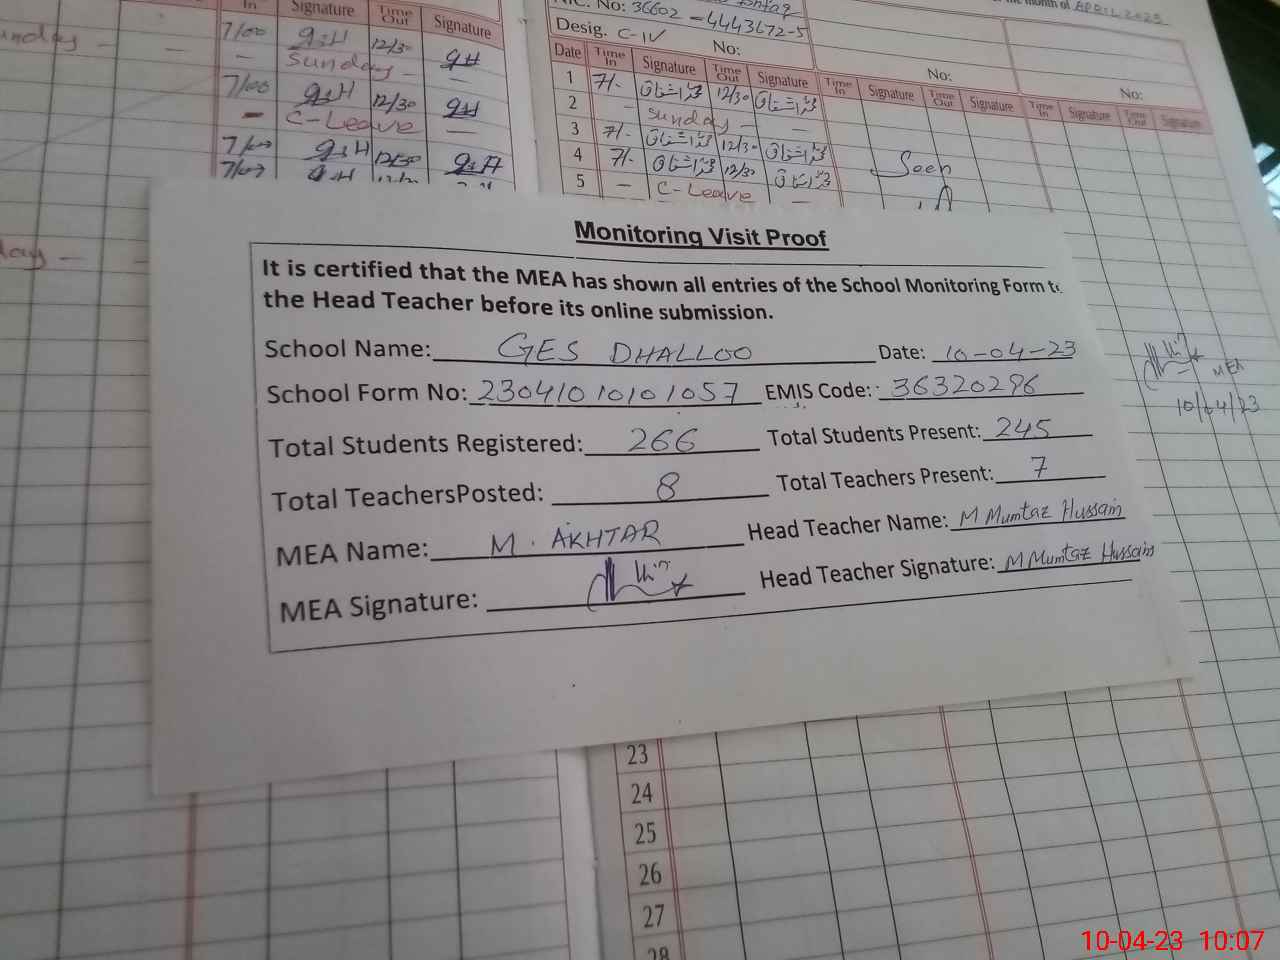 In Signature Time Out Signature
7/00 12/30
— Sunday — —
7/00 12/30
— C-Leave —
7/00 12/30
7/00
NIC. No: 36602-4443672-5
the month of APRIL 2023
Desig. C-IV No:
No:
No:
Date Time In Signature Time Out Signature Time In Signature Time Out Signature Time In Signature Time Out Signature
1 7/- 12/30
2 — Sunday — —
3 7/- 12/30
4 7/- 12/30
5 — C-Leave —
Seen
Monitoring Visit Proof
It is certified that the MEA has shown all entries of the School Monitoring Form to
the Head Teacher before its online submission.
School Name: GES DHALLOO Date: 10-04-23
School Form No: 23041010101057 EMIS Code: 36320296
Total Students Registered: 266 Total Students Present: 245
Total TeachersPosted: 8 Total Teachers Present: 7
MEA Name: M. AKHTAR Head Teacher Name: M Mumtaz Hussain
MEA Signature: Head Teacher Signature: M Mumtaz Hussain
MEA
10/04/23
23
24
25
26
27
28
10-04-23 10:07